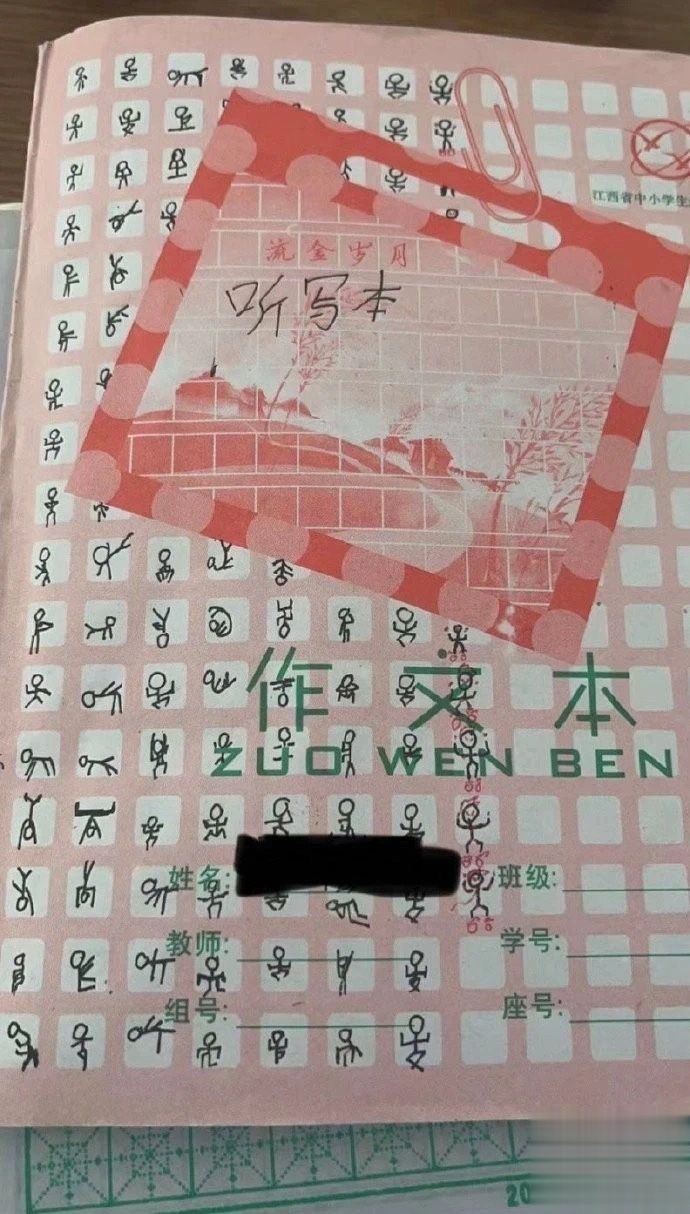 江西省中小学生
流金岁月
听写本
作文本
ZUO WEN BEN
姓名: 班级:
教师: 学号:
组号: 座号:
20